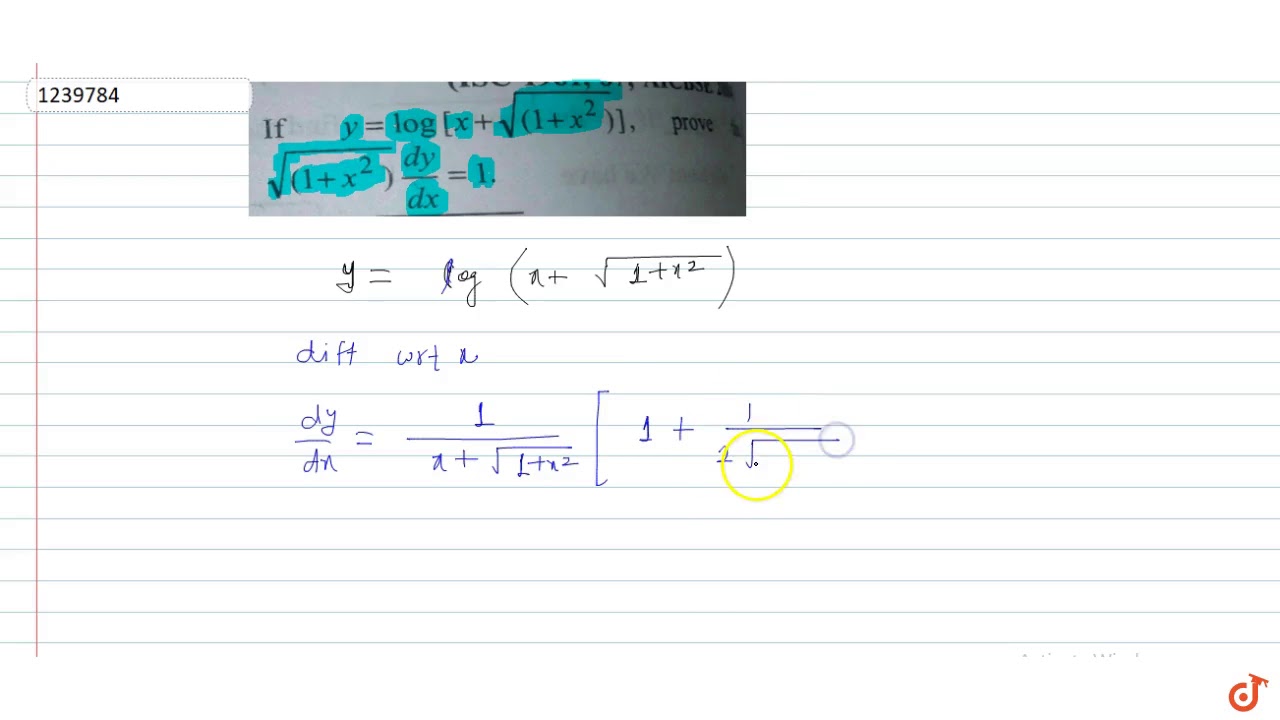 1239784
If y = log [x + √(1+x²)], prove
√(1+x²) dy/dx = 1.
y = log (x + √1+x²)
diff wrt x
dy/dx = 1/(x + √1+x²) [ 1 + 1/2√